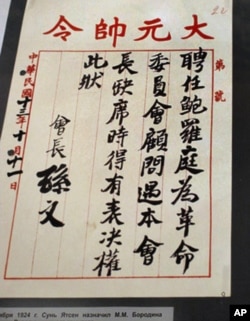 大元帥令
第 號
聘任鮑羅庭為革命
委員會顧問遇本會
長缺席時得有表决權
此狀
會長 孫文
中華民國十三年十月十一日
ября 1924 г. Сунь Ятсен назначил М.М. Бородина
AP